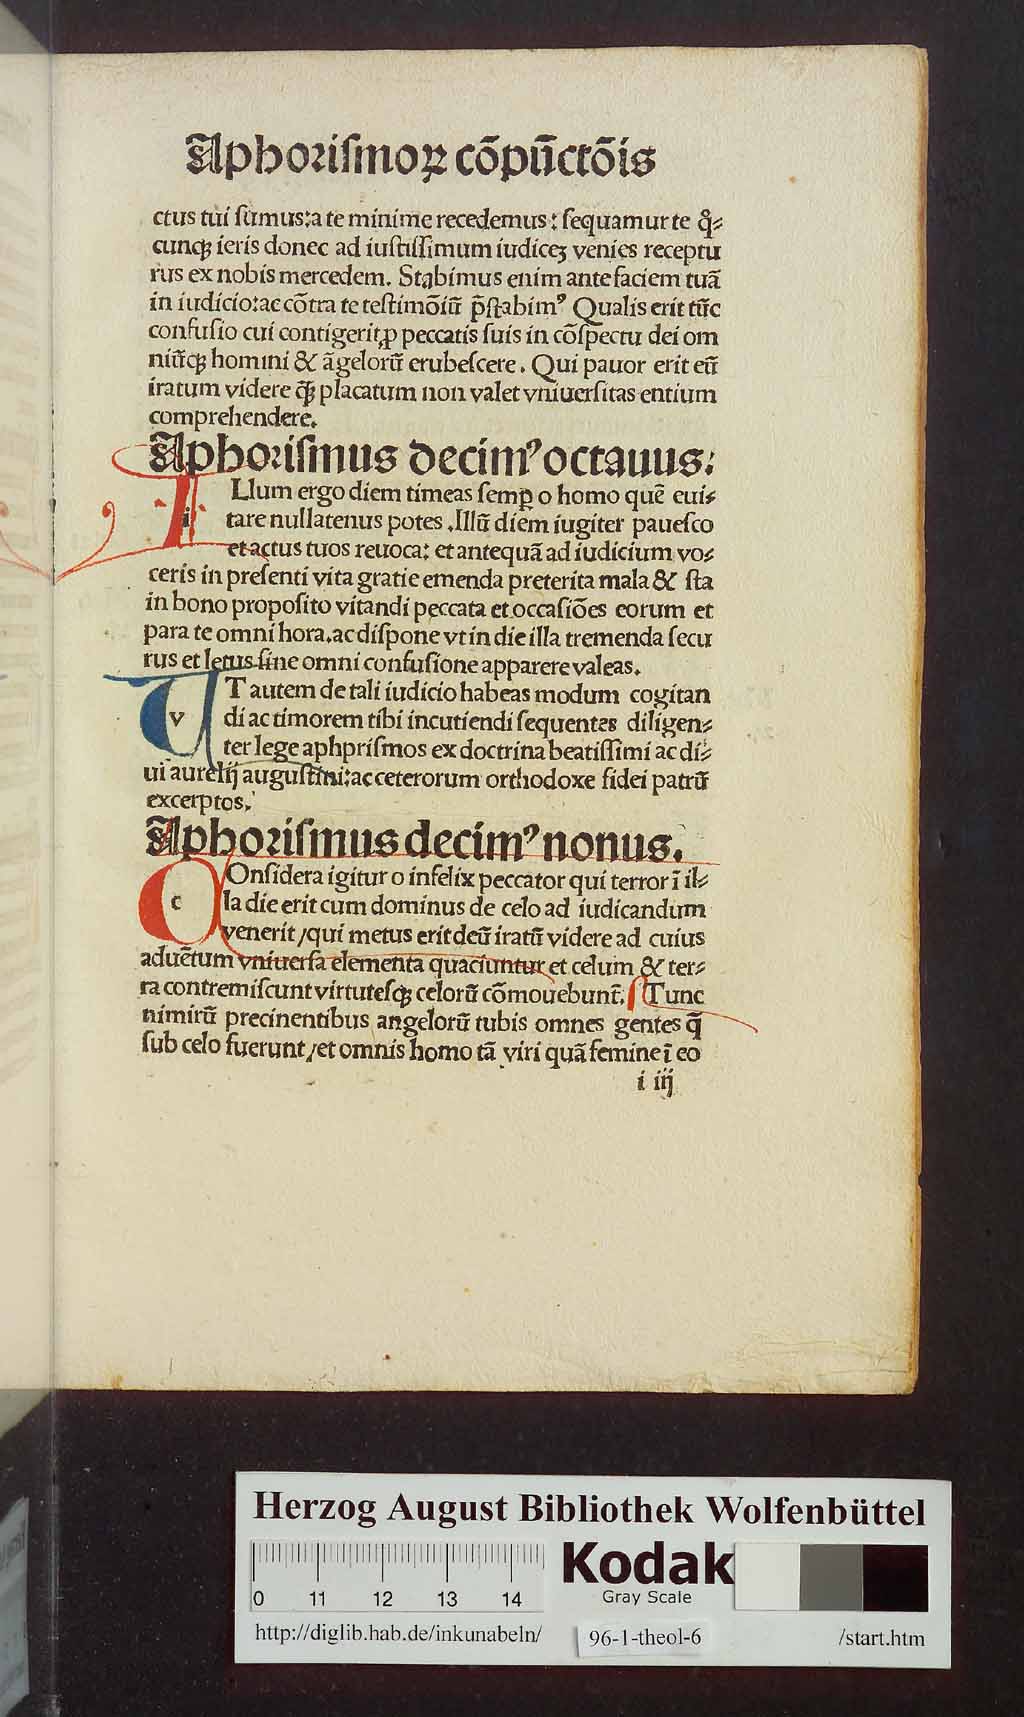 Aphoriſmoꝝ cōpūctōis
ctus tui ſumus: a te minime recedemus: ſequamur te q̊⸗
cunqꝫ ieris donec ad iuſtiſſimum iudiceꝫ venies receptu
rus ex nobis mercedem. Stabimus enim ante faciem tuā
in iudicio: ac cōtra te teſtimōiū p̄ſtabimꝰ Qualis erit tūc
confuſio cui contigerit ꝓ peccatis ſuis in cōſpectu dei om
niūqꝫ homini & āgelorū erubeſcere. Qui pauor erit eū
iratum videre quē placatum non valet vniuerſitas entium
comprehendere.
Aphoriſmus decimꝰ octauus:
ILlum ergo diem timeas ſemꝑ o homo quē eui⸗
tare nullatenus potes. Illū diem iugiter paueſco
et actus tuos reuoca: et antequā ad iudicium vo⸗
ceris in preſenti vita gratie emenda preterita mala & ſta
in bono propoſito vitandi peccata et occaſiōes eorum et
para te omni hora. ac diſpone vt in die illa tremenda ſecu
rus et letus ſine omni confuſione apparere valeas.
VT autem de tali iudicio habeas modum cogitan
di ac timorem tibi incutiendi ſequentes diligen⸗
ter lege aphpriſmos ex doctrina beatiſſimi ac di⸗
ui aurelij auguſtini: ac ceterorum orthodoxe fidei patrū
excerptos.
Aphoriſmus decimꝰ nonus.
COnſidera igitur o infelix peccator qui terror ī il⸗
la die erit cum dominus de celo ad iudicandum
venerit / qui metus erit deū iratū videre ad cuius
aduētum vniuerſa elementa quaciuntur et celum & ter⸗
ra contremiſcunt virtuteſqꝫ celorū cōmouebunt̄. Tunc
nimirū precinentibus angelorū tubis omnes gentes q̄
ſub celo fuerunt / et omnis homo tā viri quā femine ī eo
i iij
Herzog August Bibliothek Wolfenbüttel
0 11 12 13 14
Kodak
Gray Scale
http://diglib.hab.de/inkunabeln/ 96-1-theol-6 /start.htm